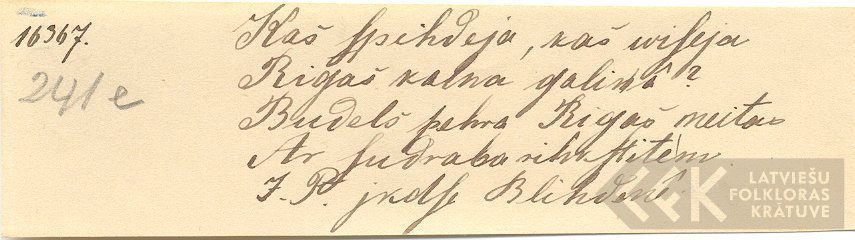 16367.
241e
Kas spihdeja, kas wiseja
Rigas kalna galinâ?
Budels pehra Rigas meitas
Ar sudraba rihkstitem.
J. P. Blihdenê
LATVIEŠU
FOLKLORAS
KRĀTUVE